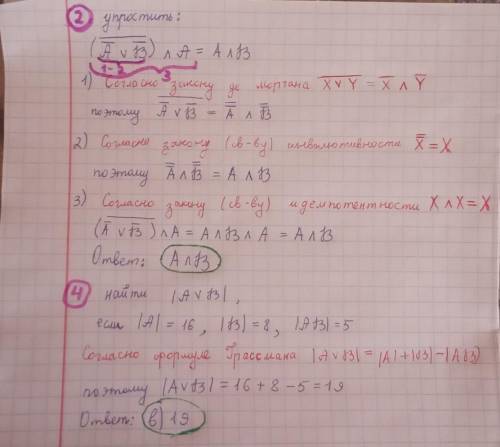 ② упростить:
(\overline{\overline{A} ∨ \overline{B}}) ∧ A = A ∧ B
1-2 3
1) Согласно закону де моргана \overline{X ∨ Y} = \overline{X} ∧ \overline{Y}
поэтому \overline{\overline{A} ∨ \overline{B}} = \overline{\overline{A}} ∧ \overline{\overline{B}}
2) Согласно закону (св-ву) инволютивности \overline{\overline{X}} = X
поэтому \overline{\overline{A}} ∧ \overline{\overline{B}} = A ∧ B
3) Согласно закону (св-ву) идемпотентности X ∧ X = X
(\overline{\overline{A} ∨ \overline{B}}) ∧ A = A ∧ B ∧ A = A ∧ B
Ответ: A ∧ B
④ найти |A ∨ B|,
если |A| = 16, |B| = 8, |AB| = 5
Согласно формуле Грассмана |A ∨ B| = |A| + |B| - |AB|
поэтому |A ∨ B| = 16 + 8 - 5 = 19
Ответ: в) 19